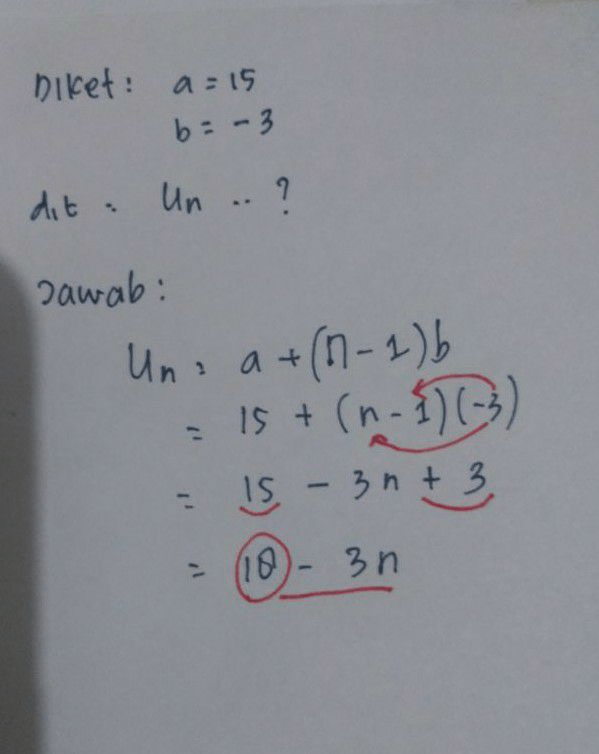 Diket : a = 15
b = -3
dit : Un .. ?
Jawab :
Un = a + (n - 1) b
= 15 + (n - 1) (-3)
= 15 - 3n + 3
= 18 - 3n